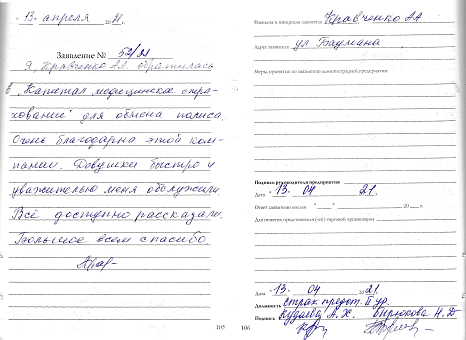 " 13 " апреля 2021 г.
Заявление № 52/21
Я, Кравченко А.А. обратилась
в "Капитал медицинское стра-
хование" для обмена полиса.
Очень благодарна этой ком-
пании. Девушки быстро и
уважительно меня обслужили.
Всё доступно рассказали.
Большое всем спасибо.
105
Фамилия и инициалы заявителя Кравченко АА
Адрес заявителя ул Баумана
Меры, принятые по заявлению администрацией предприятия:
Подпись руководителя предприятия
Дата "13" 04 2021.
Ответ заявителю послан "___" 20 г.
Для отметок представителя (-ей) торговой организации
Дата "13" 04 2021
Должность страх. предст. II ур.
А. Х. Бирюкова Н. Д
Подпись
106